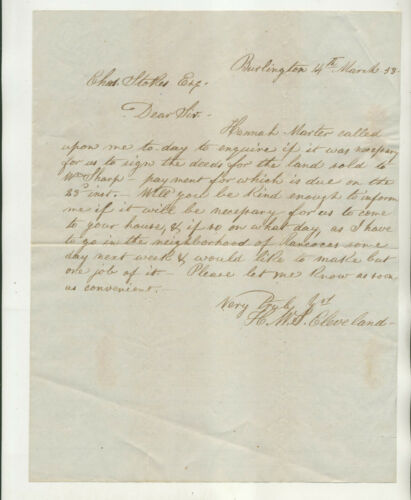 Burlington 14th March 53.
Chas Stokes Esq.
Dear Sir.
Hannah Marter called
upon me to-day to enquire if it was necessary
for us to sign the deeds for the land sold to
Wm Sharp - payment for which is due on the
23d inst. - Will you be kind enough to inform
me if it will be necessary for us to come
to your house, & if so on what day, as I have
to go in the neighborhood of Rancocas some
day next week & would like to make but
one job of it - Please let me know as soon
as convenient. -
Very truly Yrs
H. W. S. Cleveland -